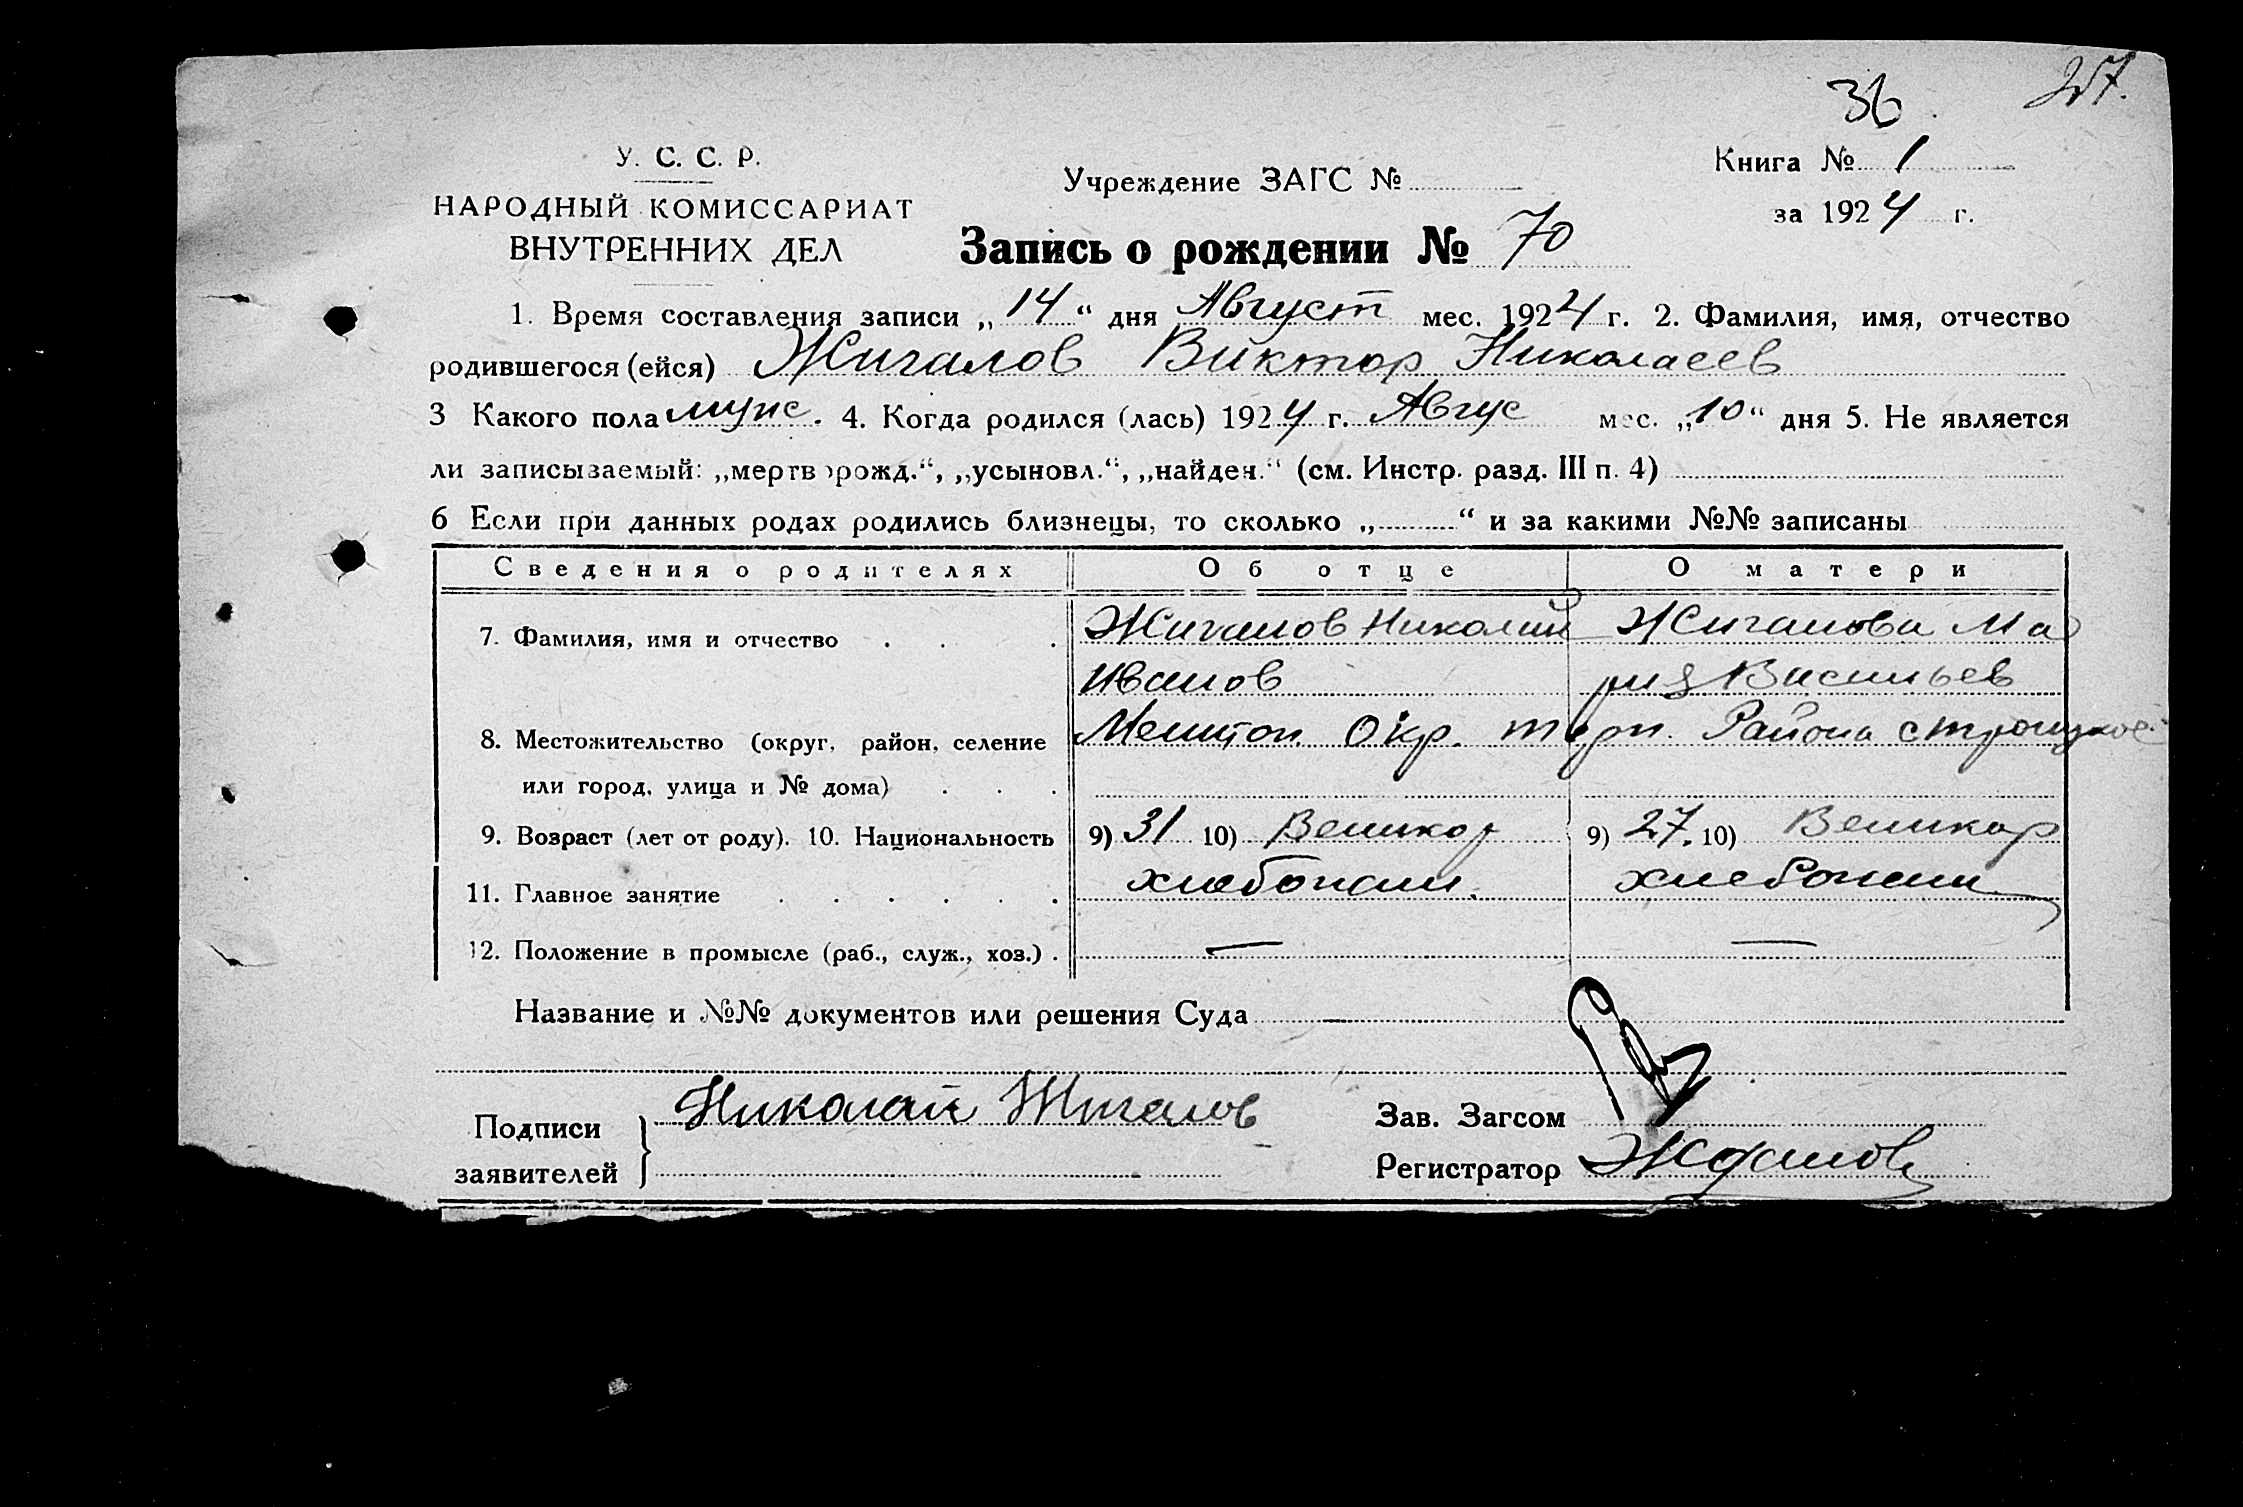 36 257.
У. С. С. Р.
НАРОДНЫЙ КОМИССАРИАТ
ВНУТРЕННИХ ДЕЛ
Учреждение ЗАГС №
Книга № 1
за 1924 г.
Запись о рождении № 70
1. Время составления записи „14“ дня Август мес. 1924 г. 2. Фамилия, имя, отчество
родившегося (ейся) Жигалов Виктор Николаев
3 Какого пола муж. 4. Когда родился (лась) 1924 г. Авгус мес. „10“ дня 5. Не является
ли записываемый: „мертворожд.“, „усыновл.“, „найден.“ (см. Инстр. разд. III п. 4)
6 Если при данных родах родились близнецы, то сколько „ “ и за какими №№ записаны
Сведения о родителях Об отце О матери
7. Фамилия, имя и отчество Жигалов Николай Жигалова Ма
Иванов рия Васильев
8. Местожительство (округ, район, селение Мелитоп. Окр. терп. Района с троицкое
или город, улица и № дома)
9. Возраст (лет от роду). 10. Национальность 9) 31 10) Великор 9) 27. 10) Великор
11. Главное занятие хлебопаш. хлебопаш
12. Положение в промысле (раб., служ., хоз.) — —
Название и №№ документов или решения Суда —
Подписи заявителей Николай Жигалов
Зав. Загсом
Регистратор Жданов